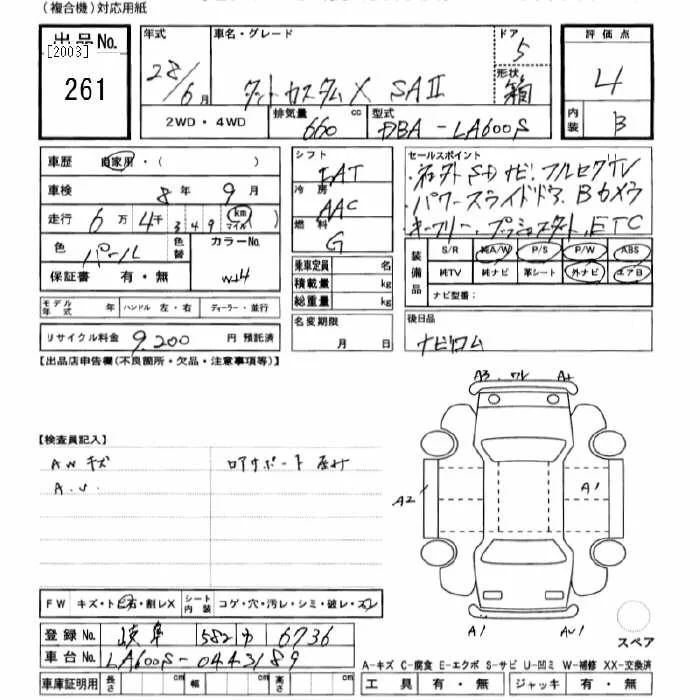 (複合機)対応用紙
出品No.
[2003]
261
年式 車名・グレード ドア 5
28/6月 タントカスタムX SAⅡ 形状 箱
2WD・4WD 排気量 660 cc 型式 DBA-LA600S
評価点
4
内装 B
車歴 自家用・( )
車検 8年 9月
走行 6万 4千 349 km マイル
色 パール 色替 カラーNo. W24
保証書 有・無
モデル年式 年 ハンドル 左・右 ディーラー・並行
リサイクル料金 9,200 円 預託済
シフト FAT
冷房 AAC
燃料 G
乗車定員 名
積載量 kg
総重量 kg
名変期限
月 日
セールスポイント
・ネオト SDナビ.フルセグTV
・パワースライドドア.Bカメラ
・キーフリー.プッシュスタート.ETC
装備品 S/R 純A/W P/S P/W ABS
純TV 純ナビ 革シート 外ナビ エアB
ナビ型番:
後日品
ナビロム
【出品店申告欄(不良箇所・欠品・注意事項等)】
【検査員記入】
AWキズ ロアサポート 歪み
A.U.
A3 A2 A1 A1 AU1
FW キズ・ト ビ石・割レX シート内装 コゲ・穴・汚レ・シミ・破レ・スレ
登録No. 岐阜 582 カ 6736
車台No. LA600S-0443189
車庫証明用 長さ cm 幅 cm 高さ cm
スペア
A-キズ C-腐食 E-エクボ S-サビ U-凹ミ W-補修 XX-交換済
工具 有・無 ジャッキ 有・無